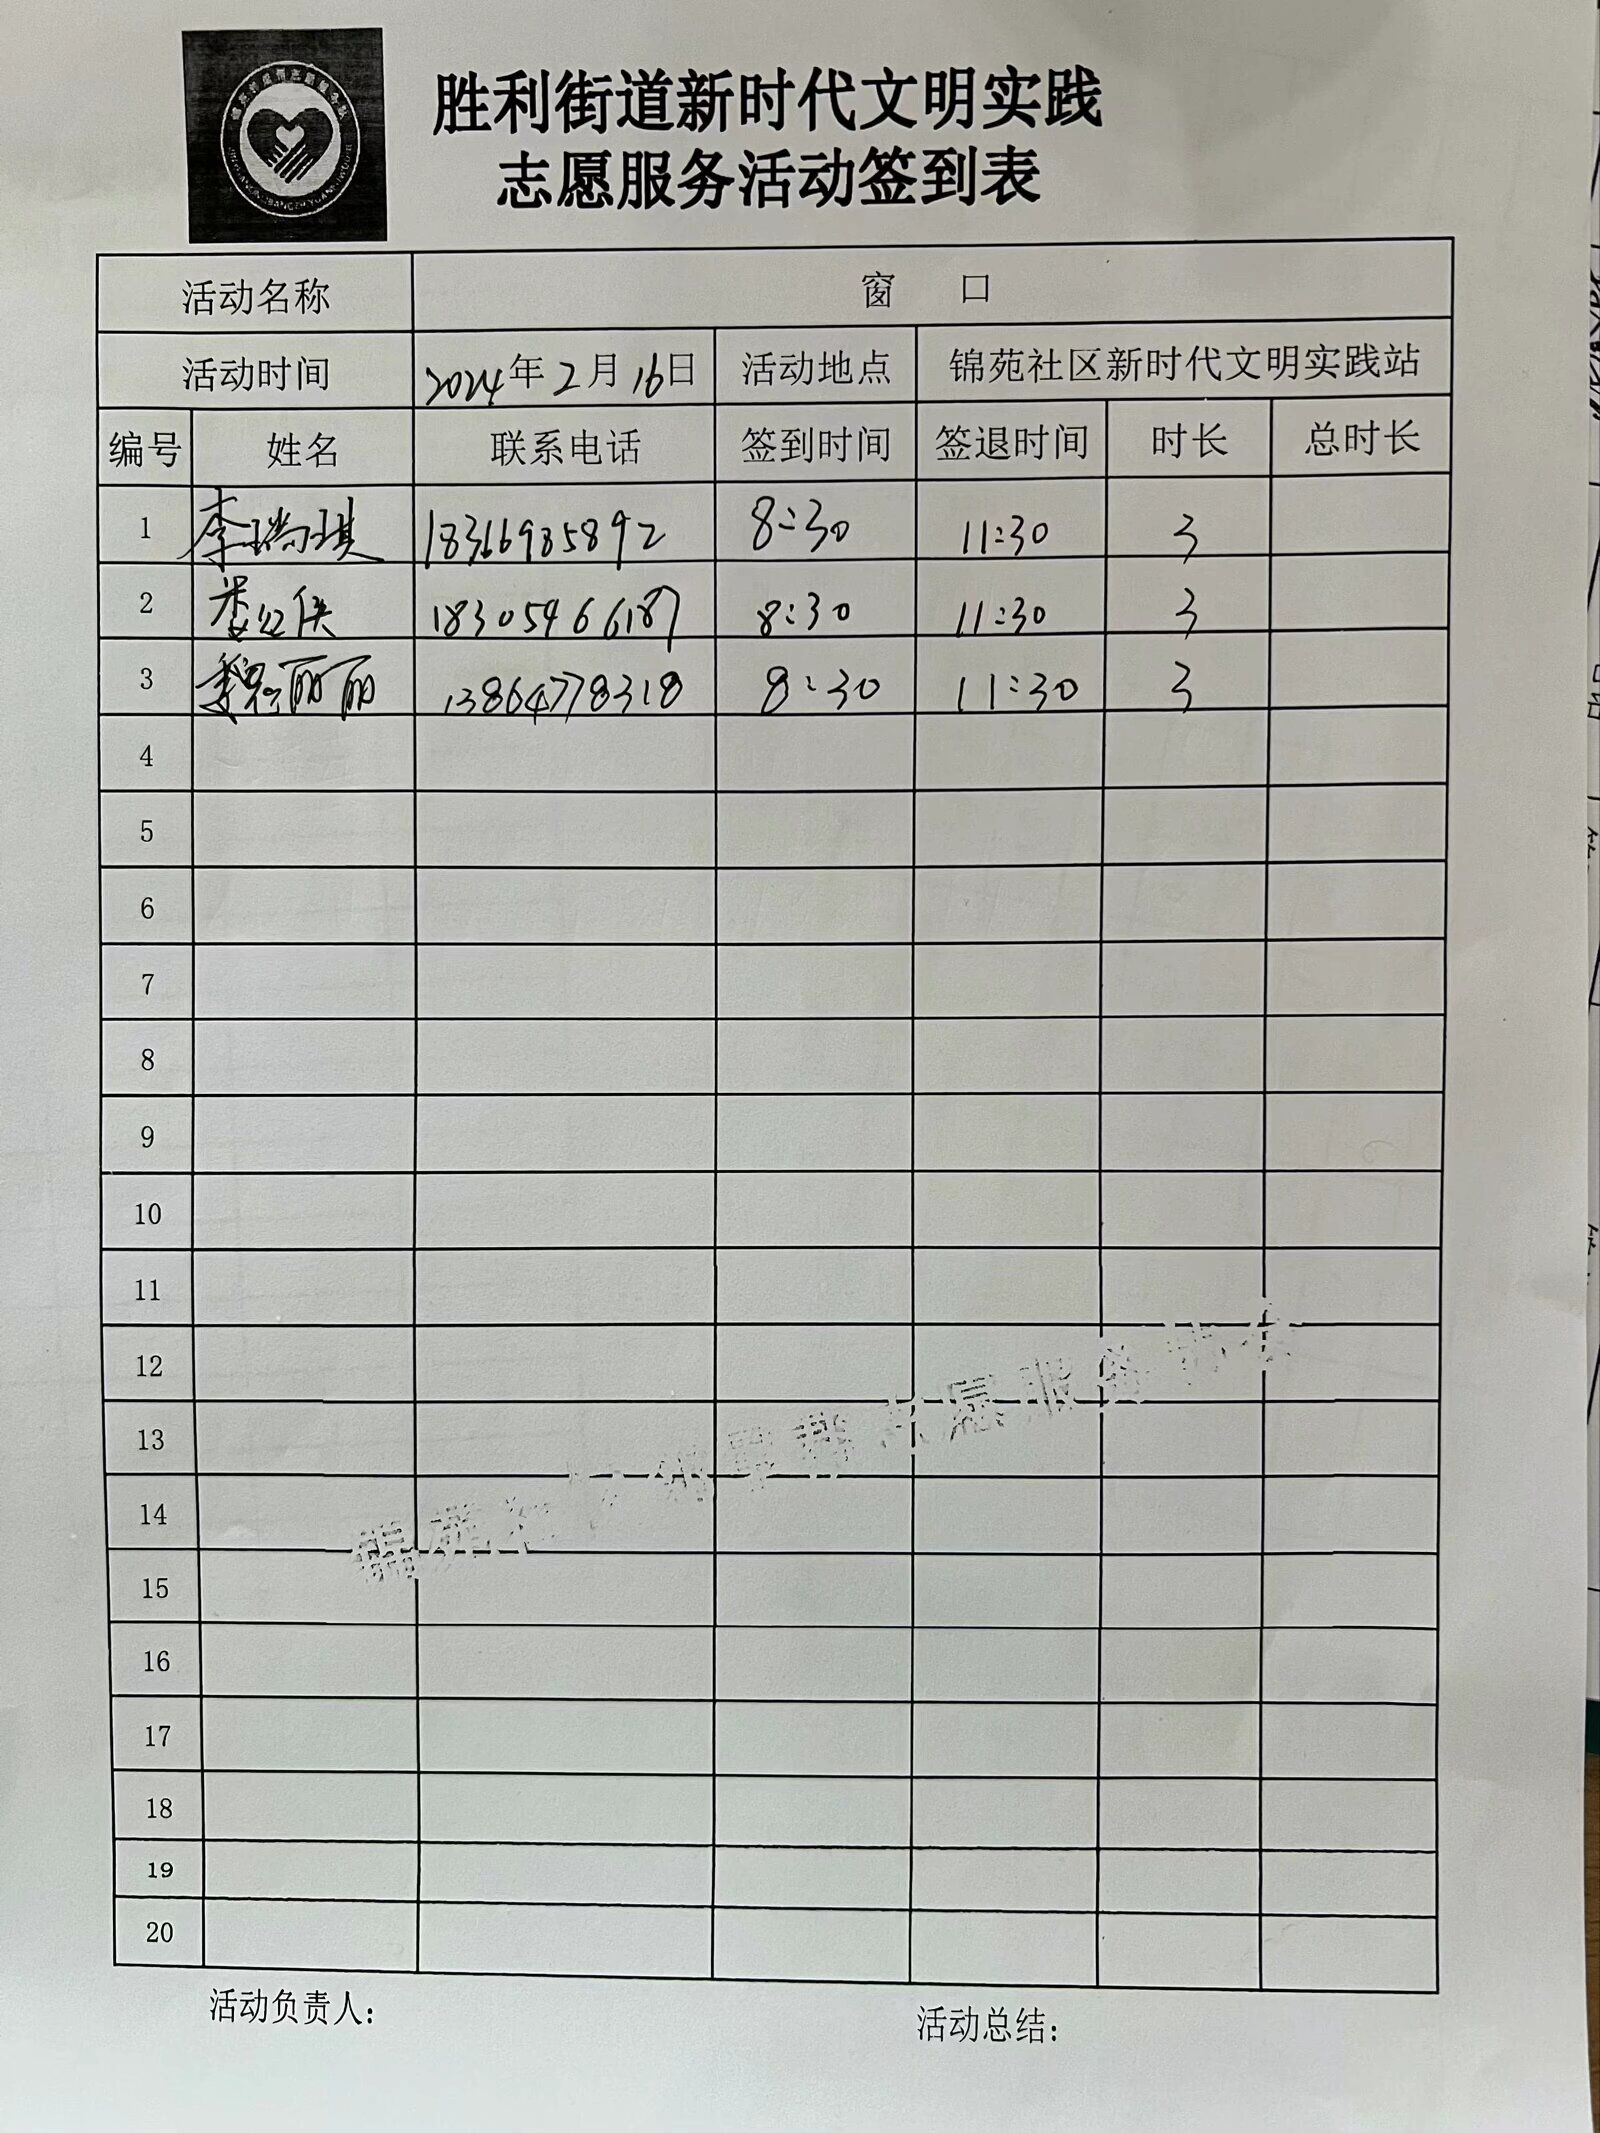 胜利街道新时代文明实践
志愿服务活动签到表
活动名称 窗 口
活动时间 2024年2月16日 活动地点 锦苑社区新时代文明实践站
编号 姓名 联系电话 签到时间 签退时间 时长 总时长
1 李瑞琪 18366985892 8:30 11:30 3
2 18305466187 8:30 11:30 3
3 魏丽丽 13864778318 8:30 11:30 3
4
5
6
7
8
9
10
11
12
13
14
15
16
17
18
19
20
活动负责人:
活动总结: